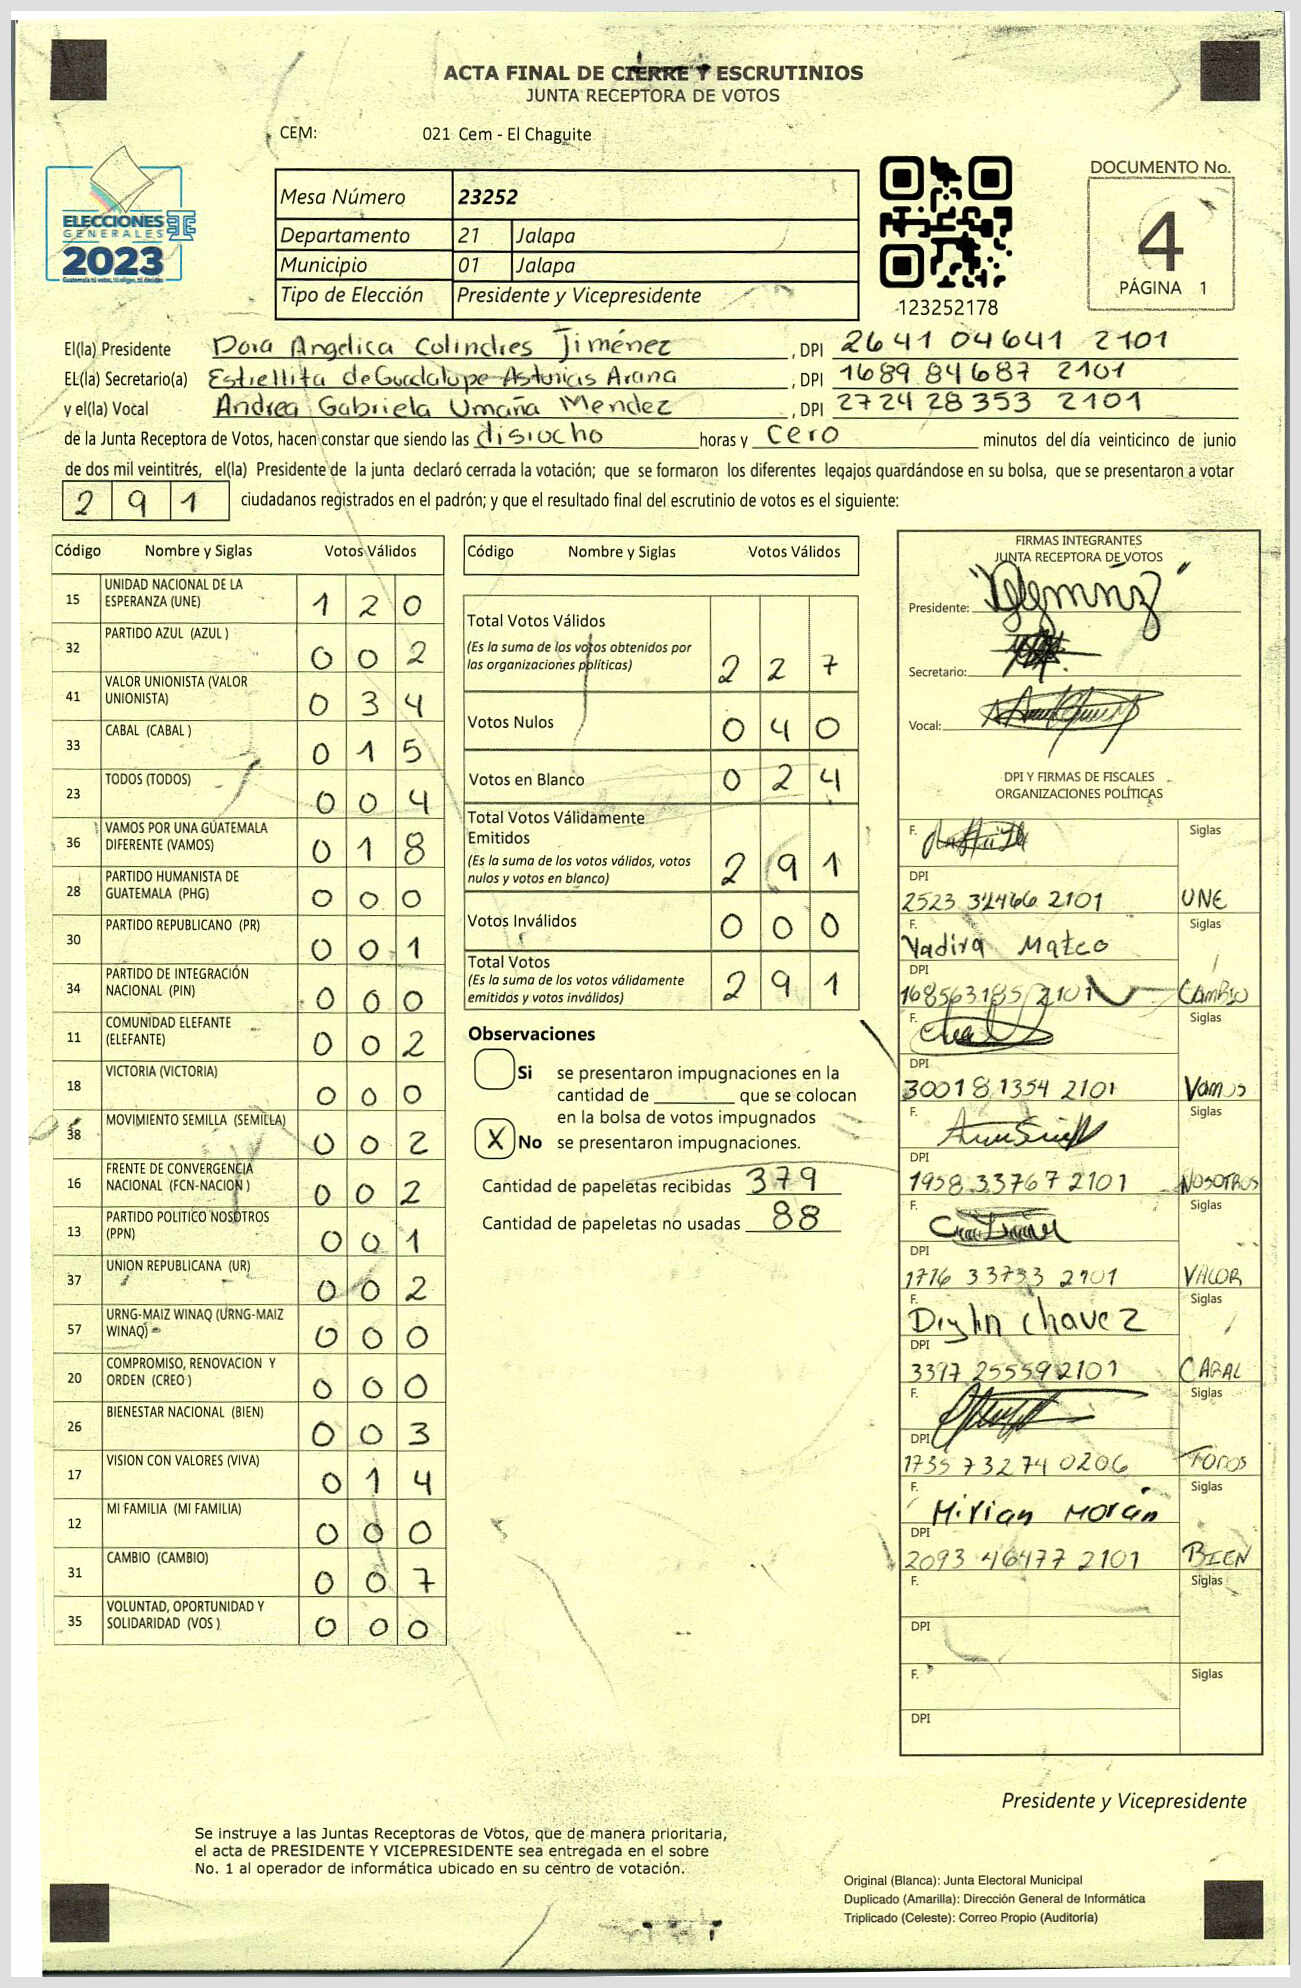 ACTA FINAL DE CIERRE Y ESCRUTINIOS
JUNTA RECEPTORA DE VOTOS
CEM: 021 Cem - El Chaguite
ELECCIONES
GENERALES
2023
Guatemala tú votas, tú eliges, tú decides
Mesa Número 23252
Departamento 21 Jalapa
Municipio 01 Jalapa
Tipo de Elección Presidente y Vicepresidente
123252178
DOCUMENTO No.
4
PÁGINA 1
El(la) Presidente Dora Angelica Colindres Jiménez, DPI 2641 04641 2101
EL(la) Secretario(a) Estrellita de Guadalupe Asturias Arana, DPI 1689 84687 2101
y el(la) Vocal Andrea Gabriela Umaña Mendez, DPI 2724 28353 2101
de la Junta Receptora de Votos, hacen constar que siendo las disiocho horas y cero minutos del día veinticinco de junio
de dos mil veintitrés, el(la) Presidente de la junta declaró cerrada la votación; que se formaron los diferentes legajos guardándose en su bolsa, que se presentaron a votar
291 ciudadanos registrados en el padrón; y que el resultado final del escrutinio de votos es el siguiente:
Código Nombre y Siglas Votos Válidos
15 UNIDAD NACIONAL DE LA ESPERANZA (UNE) 120
32 PARTIDO AZUL (AZUL) 002
41 VALOR UNIONISTA (VALOR UNIONISTA) 034
33 CABAL (CABAL) 015
23 TODOS (TODOS) 004
36 VAMOS POR UNA GUATEMALA DIFERENTE (VAMOS) 018
28 PARTIDO HUMANISTA DE GUATEMALA (PHG) 000
30 PARTIDO REPUBLICANO (PR) 001
34 PARTIDO DE INTEGRACIÓN NACIONAL (PIN) 000
11 COMUNIDAD ELEFANTE (ELEFANTE) 002
18 VICTORIA (VICTORIA) 000
38 MOVIMIENTO SEMILLA (SEMILLA) 002
16 FRENTE DE CONVERGENCIA NACIONAL (FCN-NACION) 002
13 PARTIDO POLITICO NOSOTROS (PPN) 001
37 UNION REPUBLICANA (UR) 002
57 URNG-MAIZ WINAQ (URNG-MAIZ WINAQ) 000
20 COMPROMISO, RENOVACION Y ORDEN (CREO) 000
26 BIENESTAR NACIONAL (BIEN) 003
17 VISION CON VALORES (VIVA) 014
12 MI FAMILIA (MI FAMILIA) 000
31 CAMBIO (CAMBIO) 007
35 VOLUNTAD, OPORTUNIDAD Y SOLIDARIDAD (VOS) 000
Código Nombre y Siglas Votos Válidos
Total Votos Válidos
(Es la suma de los votos obtenidos por
las organizaciones políticas) 227
Votos Nulos 040
Votos en Blanco 024
Total Votos Válidamente
Emitidos
(Es la suma de los votos válidos, votos
nulos y votos en blanco) 291
Votos Inválidos 000
Total Votos
(Es la suma de los votos válidamente
emitidos y votos inválidos) 291
Observaciones
Si se presentaron impugnaciones en la
cantidad de ________ que se colocan
en la bolsa de votos impugnados
X No se presentaron impugnaciones.
Cantidad de papeletas recibidas 379
Cantidad de papeletas no usadas 88
FIRMAS INTEGRANTES
JUNTA RECEPTORA DE VOTOS
Presidente:
Secretario:
Vocal:
DPI Y FIRMAS DE FISCALES
ORGANIZACIONES POLÍTICAS
F. Siglas
DPI
2101 UNE
F. Siglas
Yadira Mateo
DPI
168563185 2101 CAMBIO
F. Siglas
DPI
30018 1354 2101 Vamos
F. Siglas
DPI
1958 33767 2101 NOSOTROS
F. Siglas
DPI
1716 33733 2101 VALOR
F. Siglas
Dirlin Chavez
DPI
3397 25559 2101 CABAL
F. Siglas
DPI
1735 73274 0206 TODOS
F. Siglas
Mirian Morán
DPI
2093 46477 2101 BIEN
F. Siglas
DPI
F. Siglas
DPI
Presidente y Vicepresidente
Se instruye a las Juntas Receptoras de Votos, que de manera prioritaria,
el acta de PRESIDENTE Y VICEPRESIDENTE sea entregada en el sobre
No. 1 al operador de informática ubicado en su centro de votación.
Original (Blanca): Junta Electoral Municipal
Duplicado (Amarilla): Dirección General de Informática
Triplicado (Celeste): Correo Propio (Auditoría)